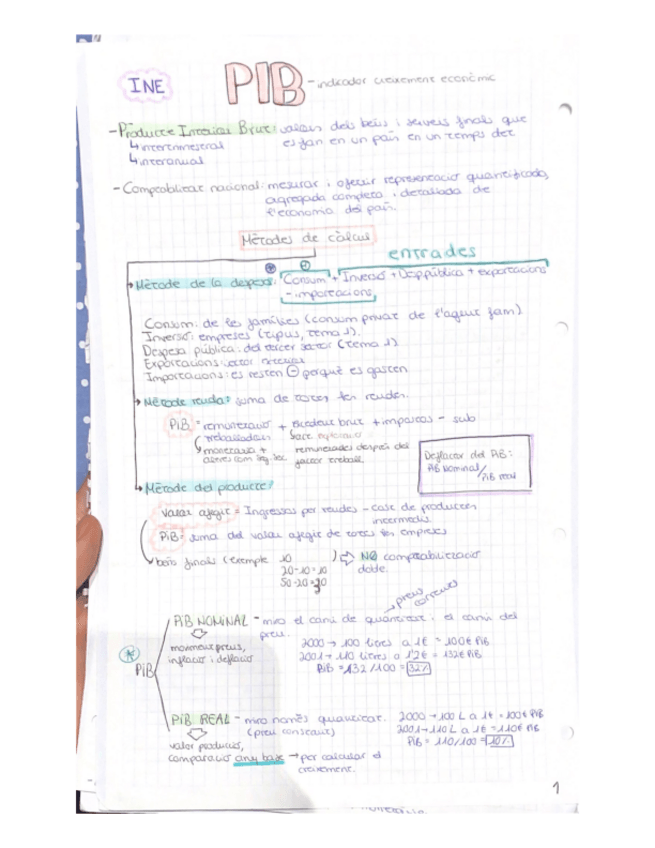 INE
PIB - indicador creixement econòmic
- Producte Interior Brut: valors dels béns i serveis finals que
↳ intertrimestral es fan en un país en un temps det
↳ interanual
- Comptabilitat nacional: mesurar i oferir representació quantificada,
agregada completa i detallada de
l'economia del país.
Mètodes de càlcul
entrades
Mètode de la despesa: Consum + Inversió + Desp pública + exportacions
- importacions
Consum: de les famílies (consum privat de l'agent fam)
Inversió: empreses (tipus, tema 1).
Despesa pública: del tercer sector (tema 1)
Exportacions: sector exterior
Importacions: es resten ⊖ perquè es gasten
Mètode renda: suma de totes les rendes.
PIB = remuneració + excedent brut + impostos - sub
treballadors
monetària + remunerades després del
factor treball
Deflactor del PIB:
PIB nominal/
PIB real
Mètode del producte:
Valor afegit = Ingressos per vendes - cost de producció
intermedis
PIB: suma del valor afegit de totes les empreses
béns finals (exemple 10 ) ⇨ NO comptabilització
20-10=10 doble.
50-20=30
preus corrents
PIB NOMINAL - mira el canvi de quantitat i el canvi del
preu.
moviment preus,
inflació i deflació
2000 → 100 litres a 1€ = 100€ PIB
2001 → 110 litres a 1'2€ = 132€ PIB
PIB = 132/100 = 32%
PIB
PIB REAL - mira només quantitat.
(preu constant)
2000 → 100 L a 1€ = 100€ PIB
2001 → 110 L a 1€ = 110€ PIB
PIB = 110/100 = 10%
valor producció,
comparació any base → per calcular el
creixement.
1